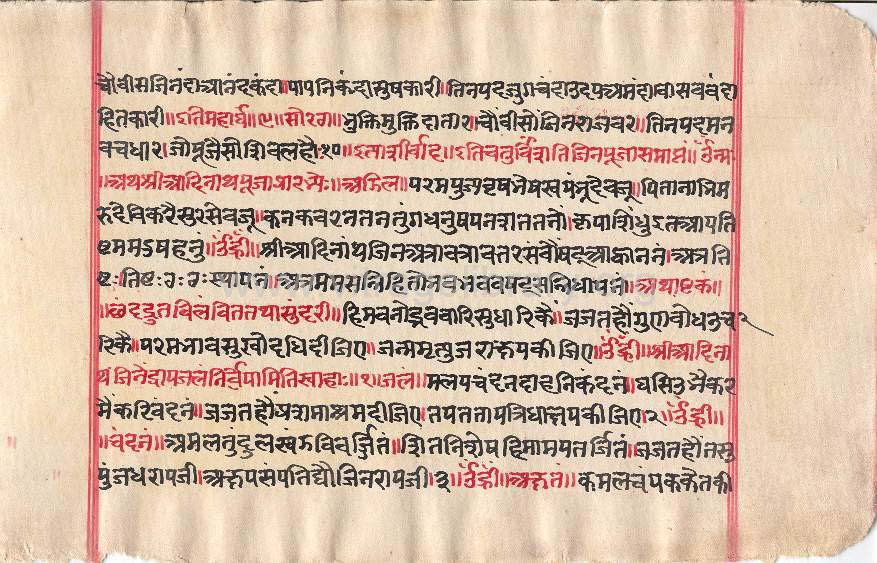 चौवीसजिनंदाआनंदकंदा॥पापनिकंदासुषकारी॥तिनपदजुगचंदाउदयअमंदावासववंदा
हितकारी॥इतिमहार्घ॥९॥सोरठा॥भुक्तिमुक्तिदातार।चौवीसोंजिनराजवर॥तिनपदमन
वचधार।जोपूजैसोशिवलहौ॥१०॥इत्याशीर्वाद॥इतिचतुर्विंशतिजिनपूजासमाप्तं॥ॐनम
॥अथश्रीआदिनाथपूजाप्रारभ्यः॥अडिल॥परमपुज्यवृषभेषस्वयंभूदेवजू॥पितानाभिम
रुदेविकरैसुरसेवजू॥कनकवरनतनतुंगधनुषपनशततनों।कृपाशिधुइतआयति
ष्टममदुषहनुं॥ॐह्रीं॥श्रीआदिनाथजिनअत्रावत्रावतरसंवौषट्आह्वाननं।अत्रति
ष्टःतिष्टःठःठःस्थापनं।अत्रममसन्निहितोभवभववषट्सन्निधापनं॥अथाष्टकं॥
॥छंदद्रुतविलंविततथासुंदरी॥हिमवनोद्भववारिसुधारिकैं।जजतहौंगुणवोधउच
रिकै॥परमभावसुखोदधिदीजिए॥जन्ममृत्युजराक्षयकीजिए॥ॐह्रीं॥श्रीआदिना
थजिनेंद्रायजलंनिर्वपामितिस्वाहाः॥१॥जलं॥मलयचंदनदाहनिकंदनं॥घसिउभैकर
मैकरिवंदनं॥जजतहौंप्रशमाश्रमदीजिए।तपततापत्रिधाक्षयकीजिए।२॥ॐह्रीं॥
॥चंदनं॥अमलतंदुलखंडविवर्जितं॥शितनिशेषहिमामयतर्जितं॥जजतहौंतसु
पुंजधरायजी।अक्षयसंपतिद्यौजिनरायजी।३॥ॐह्रीं॥अक्षतं॥कमलचंपककेतकी